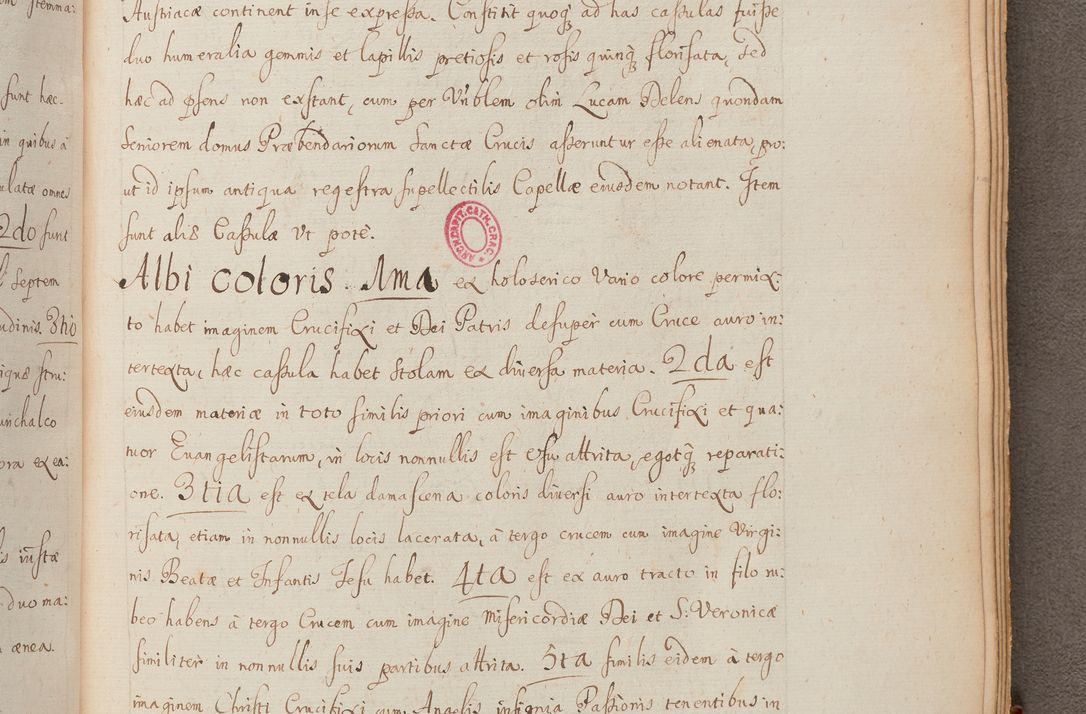 stemma:
sunt hæc
in quibus à
ulatæ omnes
2do sunt
Septem
udinis. 3tio
iquæ stru:
urichalco
ora ex ea:
is iustæ
duo ma:
ænea.
Austriacæ continent in se expressa. Constitit quoq̃ ad has cassulas fuisse
duo humeralia gemmis et lapillis pretiosis et rosis quinq̃ florisata, sed
hæc ad p̃sens non exstant, cum per Vñblem olim Lucam Delens quondam
Seniorem domus Præbendariorum Sanctæ Crucis asseruntur esse alienata, pro:
ut id ipsum antiqua regestra supellectilis Capellæ eiusdem notant. Item
sunt aliæ Cassulæ Vt pote.
ARCHI.CAPIT.CATH.CRAC.
Albi coloris. 1ma ex holoserico Vario colore permix:
to habet imaginem Crucifixi et Dei Patris desuper cum Cruce auro in:
tertexta, hæc cassula habet Stolam ex diversa materia. 2da est
eiusdem materiæ in toto similis priori cum imaginibus Crucifixi et qua:
tuor Euangelistarum, in locis nonnullis est Vsu attrita, egetq̃ reparati:
one. 3tia est ex tela damascena coloris diversi auro intertexta flo:
risata, etiam in nonnullis locis lacerata, à tergo crucem cum imagine Virgi:
nis Beatæ et Infantis Iesu habet. 4ta est ex auro tracto in filo ru:
beo habens à tergo Crucem cum imagine Misericordiæ Dei et S: Veronicæ
similiter in nonnullis suis partibus attrita. 5ta similis eidem à tergo
imaginem Christi Crucifixi cum Angelis insignia Passionis tenentibus in